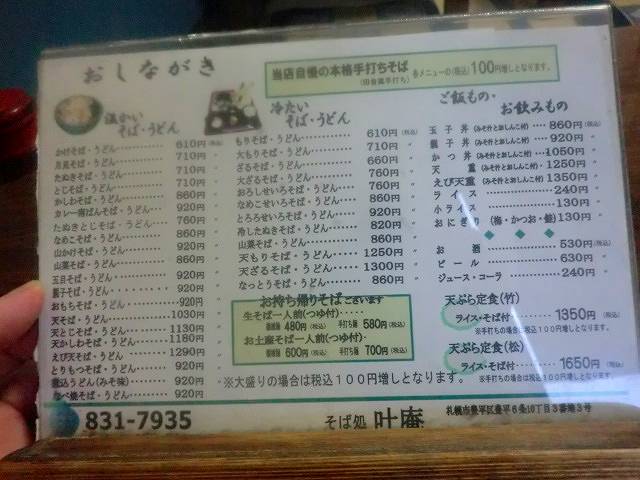 おしながき
当店自慢の本格手打ちそば 各メニューの(税込)100円増しとなります。
(田舎風手打ち)
温かい
そば・うどん
かけそば・うどん 610円(税込)
月見そば・うどん 710円 〃
たぬきそば・うどん 710円 〃
とじそば・うどん 710円 〃
かしわそば・うどん 860円 〃
カレー南ばんそば・うどん 920円 〃
たぬきとじそば・うどん 760円 〃
なめこそば・うどん 860円 〃
山かけそば・うどん 920円 〃
山菜そば・うどん 860円 〃
玉目そば・うどん 920円 〃
親子そば・うどん 920円 〃
おもちそば・うどん 920円 〃
天そば・うどん 1030円 〃
天とじそば・うどん 1130円 〃
天かしわそば・うどん 1180円 〃
えび天そば・うどん 1290円 〃
とりもつそば・うどん 920円 〃
煮込うどん(みそ味) 920円 〃
なべ焼そば・うどん 920円 〃
冷たい
そば・うどん
もりそば・うどん 610円(税込)
大もりそば・うどん 710円 〃
ざるそば・うどん 660円 〃
大ざるそば・うどん 760円 〃
おろしせいろそば・うどん 760円 〃
なめこせいろそば・うどん 860円 〃
とろろせいろそば・うどん 920円 〃
冷したぬきそば・うどん 820円 〃
山菜そば・うどん 860円 〃
天もりそば・うどん 1250円 〃
天ざるそば・うどん 1300円 〃
なっとうそば・うどん 860円 〃
お持ち帰りそばございます
生そば一人前(つゆ付)
機械麺 480円(税込) 手打ち麺 580円(税込)
お土産そば一人前(つゆ付)
機械麺 600円(税込) 手打ち麺 700円(税込)
ご飯もの・
お飲みもの
玉子丼(みそ汁とおしんこ付) 860円(税込)
親子丼(みそ汁とおしんこ付) 920円 〃
かつ丼(みそ汁とおしんこ付) 1050円 〃
天重(みそ汁とおしんこ付) 1250円 〃
えび天重(みそ汁とおしんこ付) 1350円 〃
ライス 240円 〃
小ライス 130円 〃
おにぎり(梅・かつお・鮭) 130円 〃
◆ ◆ ◆
お酒 530円(税込)
ビール 630円 〃
ジュース・コーラ 240円 〃
天ぷら定食(竹)
ライス・そば付 1350円(税込)
※手打ちの場合は税込100円増しとなります。
天ぷら定食(松)
ライス・そば付 1650円(税込)
※手打ちの場合は税込100円増しとなります。
※大盛りの場合は税込100円増しとなります。
831-7935
そば処 叶庵
札幌市豊平区豊平6条10丁目3番地3号